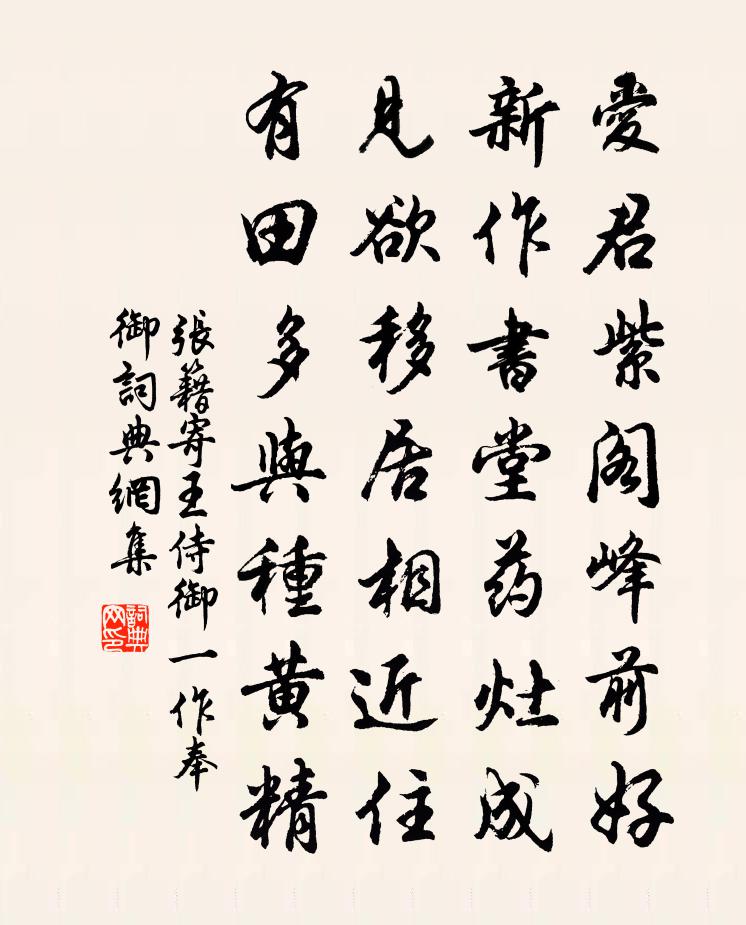 愛君紫閣峰前好
新作書堂药灶成
見欲移居相近住
有田多與種黄精
張籍寄王侍御一作奉
御詞典網集
詞典
网印